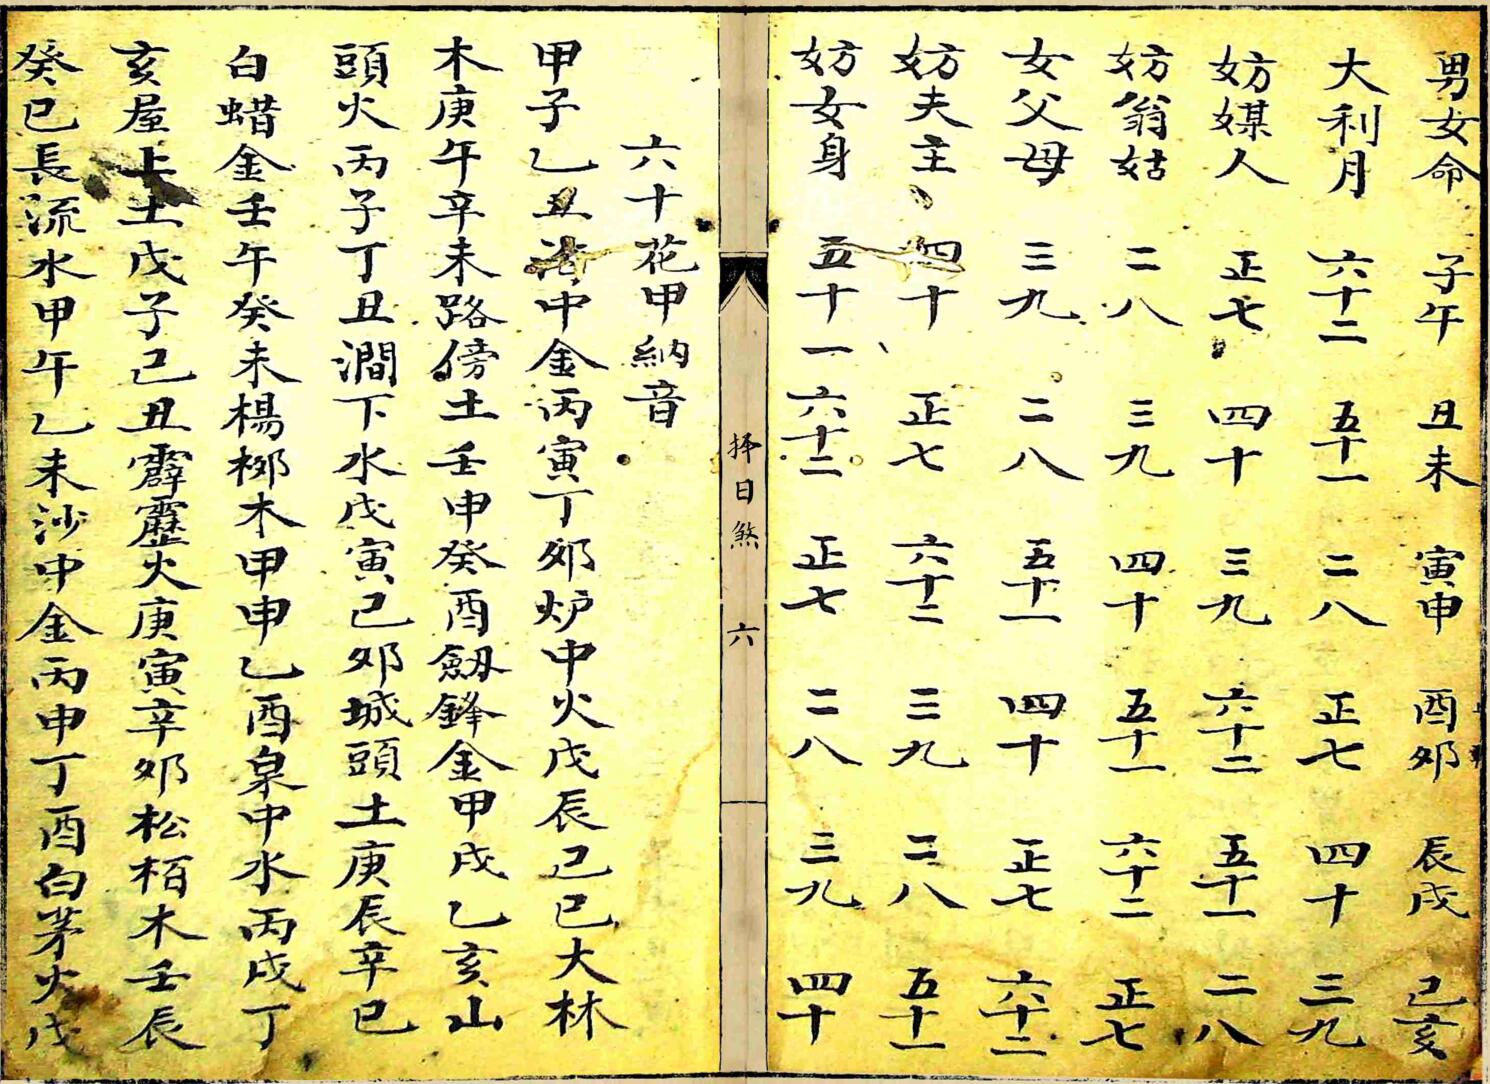 男女命 子午 丑未 寅申 酉夘 辰戌 己亥
大利月 六十二 五十一 二八 正七 四十 三九
妨媒人 正七 四十 三九 六十二 五十一 二八
妨翁姑 二八 三九 四十 五十一 六十二 正七
女父母 三九 二八 五十一 四十 正七 六十二
妨夫主 四十 正七 六十二 三九 二八 五十一
妨女身 五十一 六十二 正七 二八 三九 四十
择日煞 六
六十花甲納音
甲子乙丑海中金丙寅丁夘炉中火戊辰己巳大林
木庚午辛未路傍土壬申癸酉劔鋒金甲戌乙亥山
頭火丙子丁丑澗下水戊寅己夘城頭土庚辰辛巳
白蜡金壬午癸未楊栁木甲申乙酉泉中水丙戌丁
亥屋上土戊子己丑霹靂火庚寅辛夘松栢木壬辰
癸巳長流水甲午乙未沙中金丙申丁酉白茅火戊